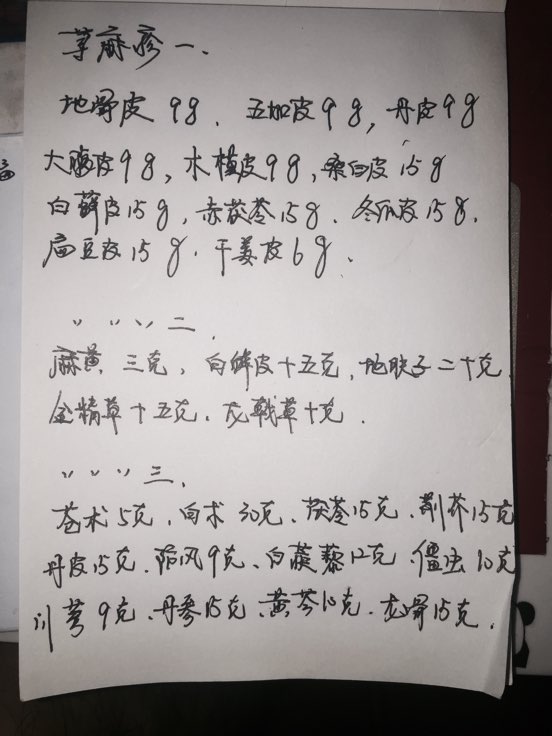 荨麻疹一.
地骨皮 9g. 五加皮9g, 丹皮9g
大腹皮9g, 木槿皮9g, 桑白皮15g
白藓皮15g, 赤茯苓15g. 冬瓜皮15g.
扁豆皮15g. 干姜皮6g.
〃 〃 〃 二.
麻黄 三克, 白鲜皮十五克, 地肤子二十克.
金精草十五克. 老鹳草十克.
〃 〃 〃 三.
苍术5克, 白术30克. 茯苓15克. 荆芥15克
丹皮15克. 防风9克. 白蒺藜12克. 僵虫10克
川芎9克. 丹参15克. 黄芩10克. 龙骨15克.